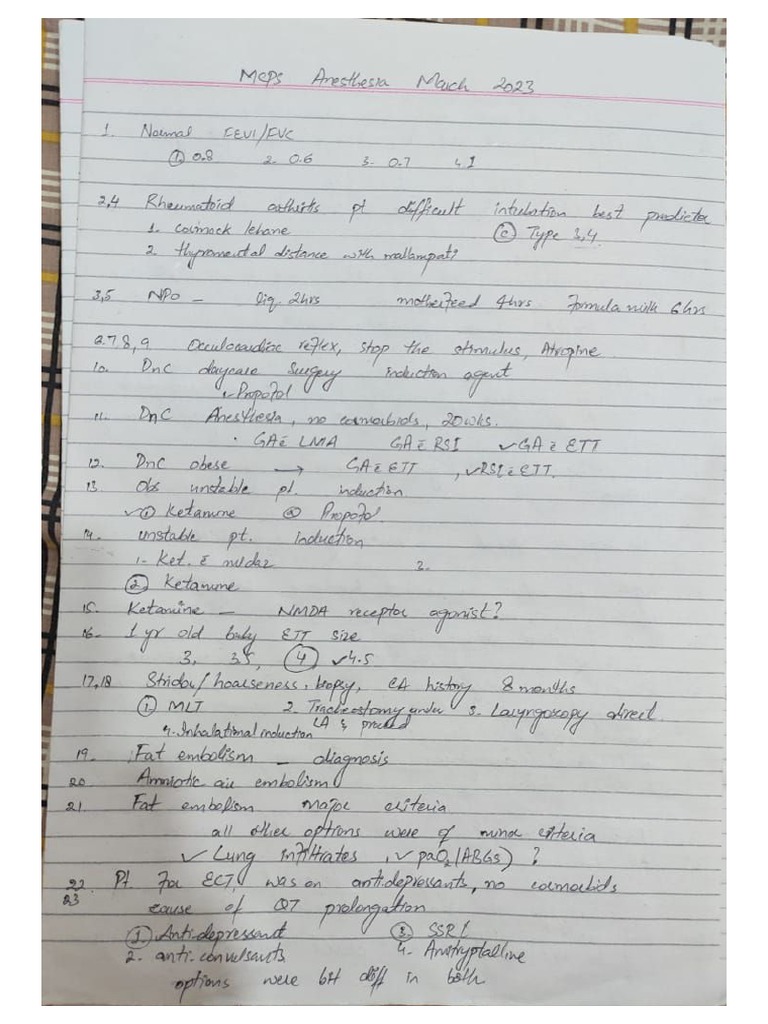 MCPS Anesthesia March 2023
1. Normal FEV1/FVC
① 0.8 2. 0.6 3. 0.7 4. 1
2,4 Rheumatoid arthirts pt difficult intubation best predictor
1. cormack lehane Ⓒ Type 3,4.
2. thyromental distance with mallampati
3,5 NPO - liq 2hrs motherfeed 4hrs Formula milk 6hrs
6.7 8, 9 Occulocardiac reflex, stop the stimulus, Atropine
10. DnC daycare surgery induction agent
✓Propofol
11. DnC Anesthesia, no comorbids, 20wks.
· GA c̄ LMA GA c̄ RSI ✓GA c̄ ETT
12. DnC obese → GA c̄ ETT, ✓RSI c̄ ETT.
13. Obs unstable pt. induction
✓① Ketamine ② Propofol
14. unstable pt. induction
1- Ket. & midaz 3.
② Ketamine
15. Ketamine - NMDA receptor agonist?
16- 1 yr old baby ETT size
3, 3.5, ④ ✓4.5
17,18 Stridor/hoarseness, biopsy, CA history 8 months
① MLT 2. Tracheostomy under 3. Laryngoscopy direct.
4. Inhalational induction LA & proceed
19. Fat embolism - diagnosis
20 Amniotic air embolism
21 Fat embolism major criteria
all other options were of minor criteria
✓ Lung infiltrates, ✓ paO2(ABGs) ?
22. Pt for ECT, was on antidepressants, no comorbids
23 cause of QT prolongation
① Anti-depressant ③. SSRI
2. anti-convulsants 4. Amitryptalline
options were bit diff in both